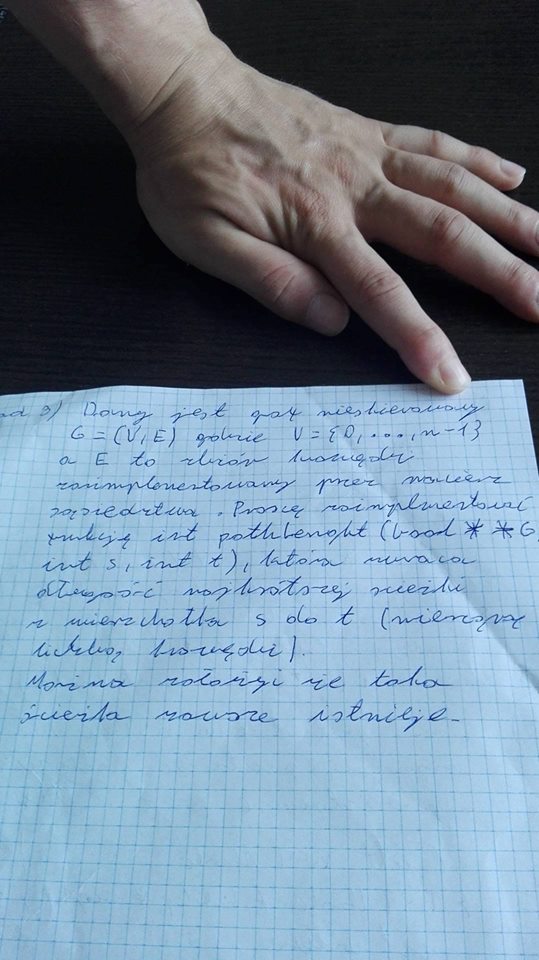 ad 3) Dany jest graf nieskierowany
G = (V, E) gdzie V = {0, ..., n-1}
a E to zbiór krawędzi
zaimplementowany przez macierz
sąsiedztwa. Proszę zaimplementować
funkcję int pathlenght (bool * * G,
int s, int t), która zwraca
długość najkrótszej ścieżki
z wierzchołka s do t (mierzoną
liczbą krawędzi).
Można założyć że taka
ścieżka zawsze istnieje.